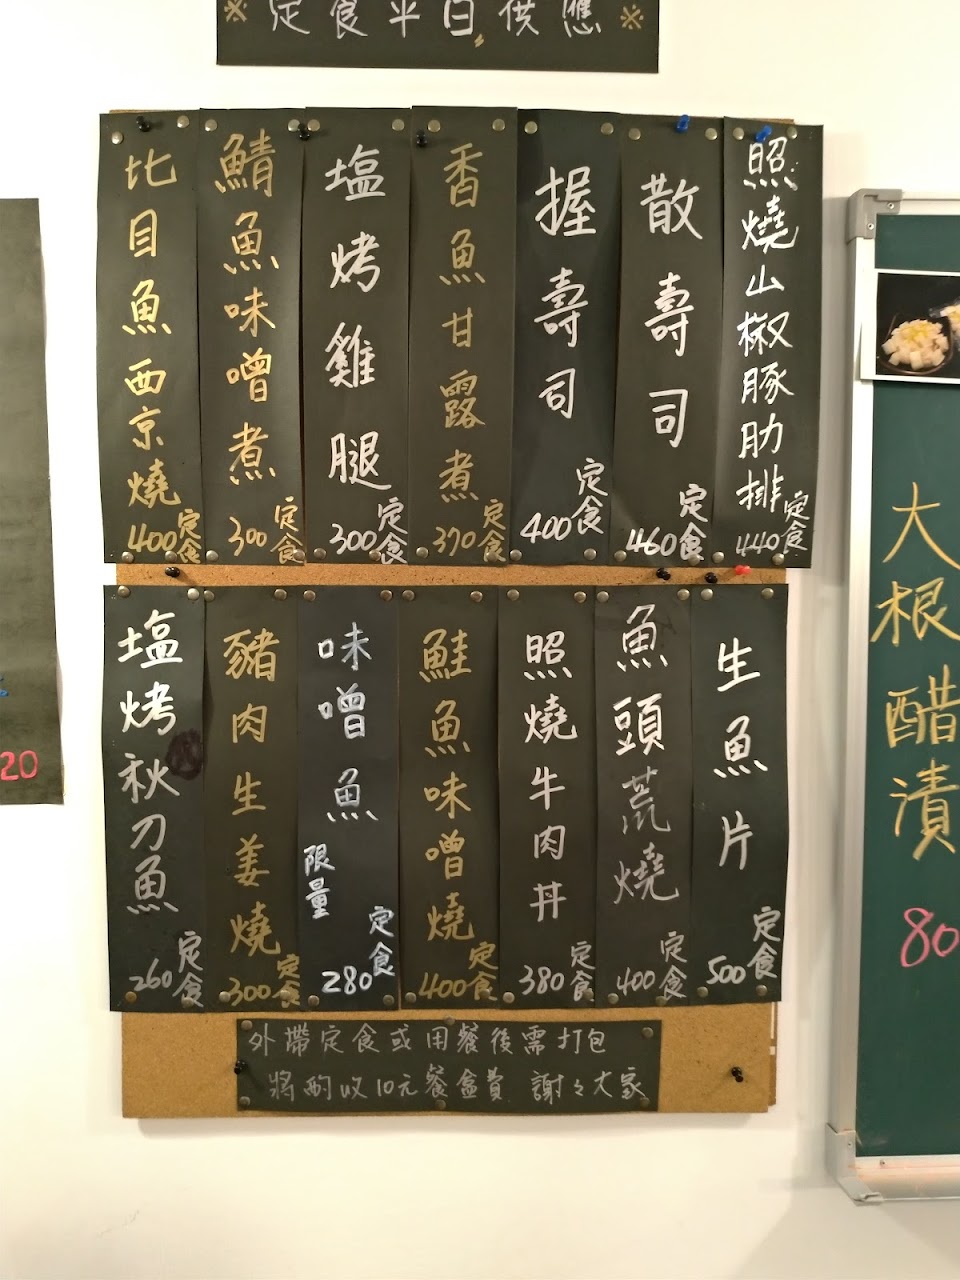 ※定食平日供應※
照燒山椒豚肋排
定食
440
散壽司
定食
460
握壽司
定食
400
香魚甘露煮
定食
370
塩烤雞腿
定食
300
鯖魚味噌煮
定食
300
比目魚西京燒
定食
400
生魚片
定食
500
魚頭荒燒
定食
400
照燒牛肉丼
定食
380
鮭魚味噌燒
定食
400
味噌魚
限量
定食
280
豬肉生姜燒
定食
300
塩烤秋刀魚
定食
260
外帶定食或用餐後需打包
將酌收10元餐盒費 謝々大家
大根醋漬
80
20